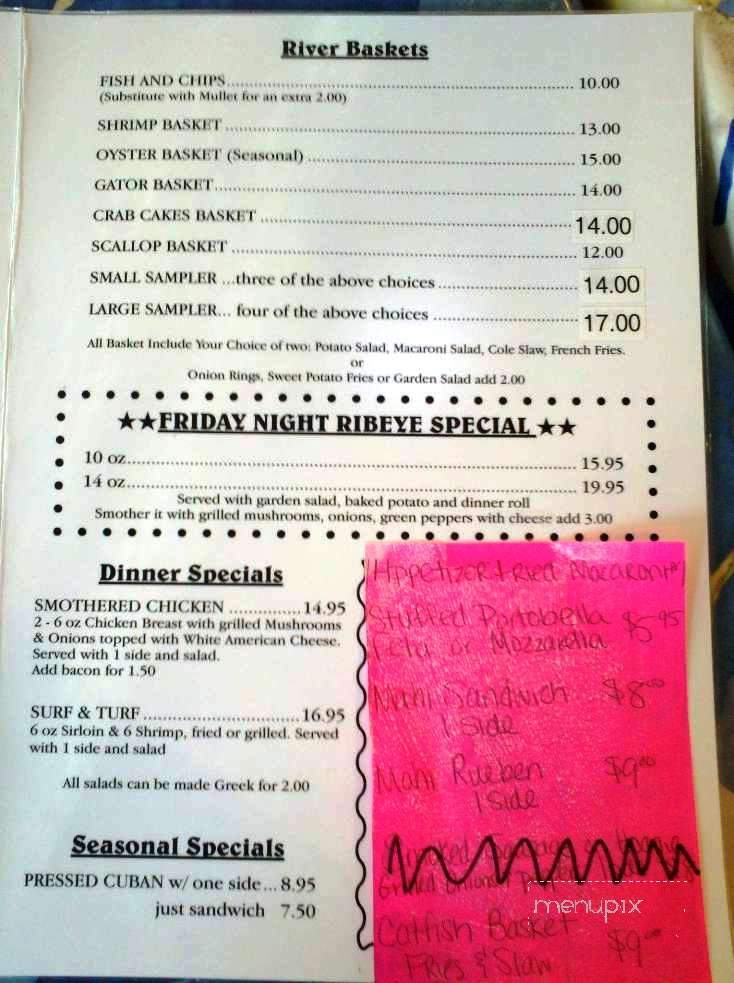 River Baskets
FISH AND CHIPS 10.00
(Substitute with Mullet for an extra 2.00)
SHRIMP BASKET 13.00
OYSTER BASKET (Seasonal) 15.00
GATOR BASKET 14.00
CRAB CAKES BASKET 14.00
SCALLOP BASKET 12.00
SMALL SAMPLER ...three of the above choices 14.00
LARGE SAMPLER... four of the above choices 17.00
All Basket Include Your Choice of two: Potato Salad, Macaroni Salad, Cole Slaw, French Fries.
or
Onion Rings, Sweet Potato Fries or Garden Salad add 2.00
★★FRIDAY NIGHT RIBEYE SPECIAL★★
10 oz 15.95
14 oz 19.95
Served with garden salad, baked potato and dinner roll
Smother it with grilled mushrooms, onions, green peppers with cheese add 3.00
Dinner Specials
SMOTHERED CHICKEN 14.95
2 - 6 oz Chicken Breast with grilled Mushrooms
& Onions topped with White American Cheese.
Served with 1 side and salad.
Add bacon for 1.50
SURF & TURF 16.95
6 oz Sirloin & 6 Shrimp, fried or grilled. Served
with 1 side and salad
All salads can be made Greek for 2.00
Seasonal Specials
PRESSED CUBAN w/ one side... 8.95
just sandwich 7.50
Appetizer Fried Macaroni
Stuffed Portobella $5.95
Feta or Mozzarella
Mahi Sandwich $8.00
1 side
Mahi Rueben $9.00
1 side
Smoked Sausage
Grilled Onions
Catfish Basket
Fries & Slaw $9.00
menupix